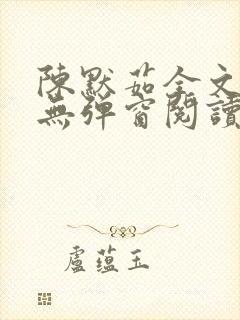 陳默茹全文
無彈窗閱讀
盧蘊玉